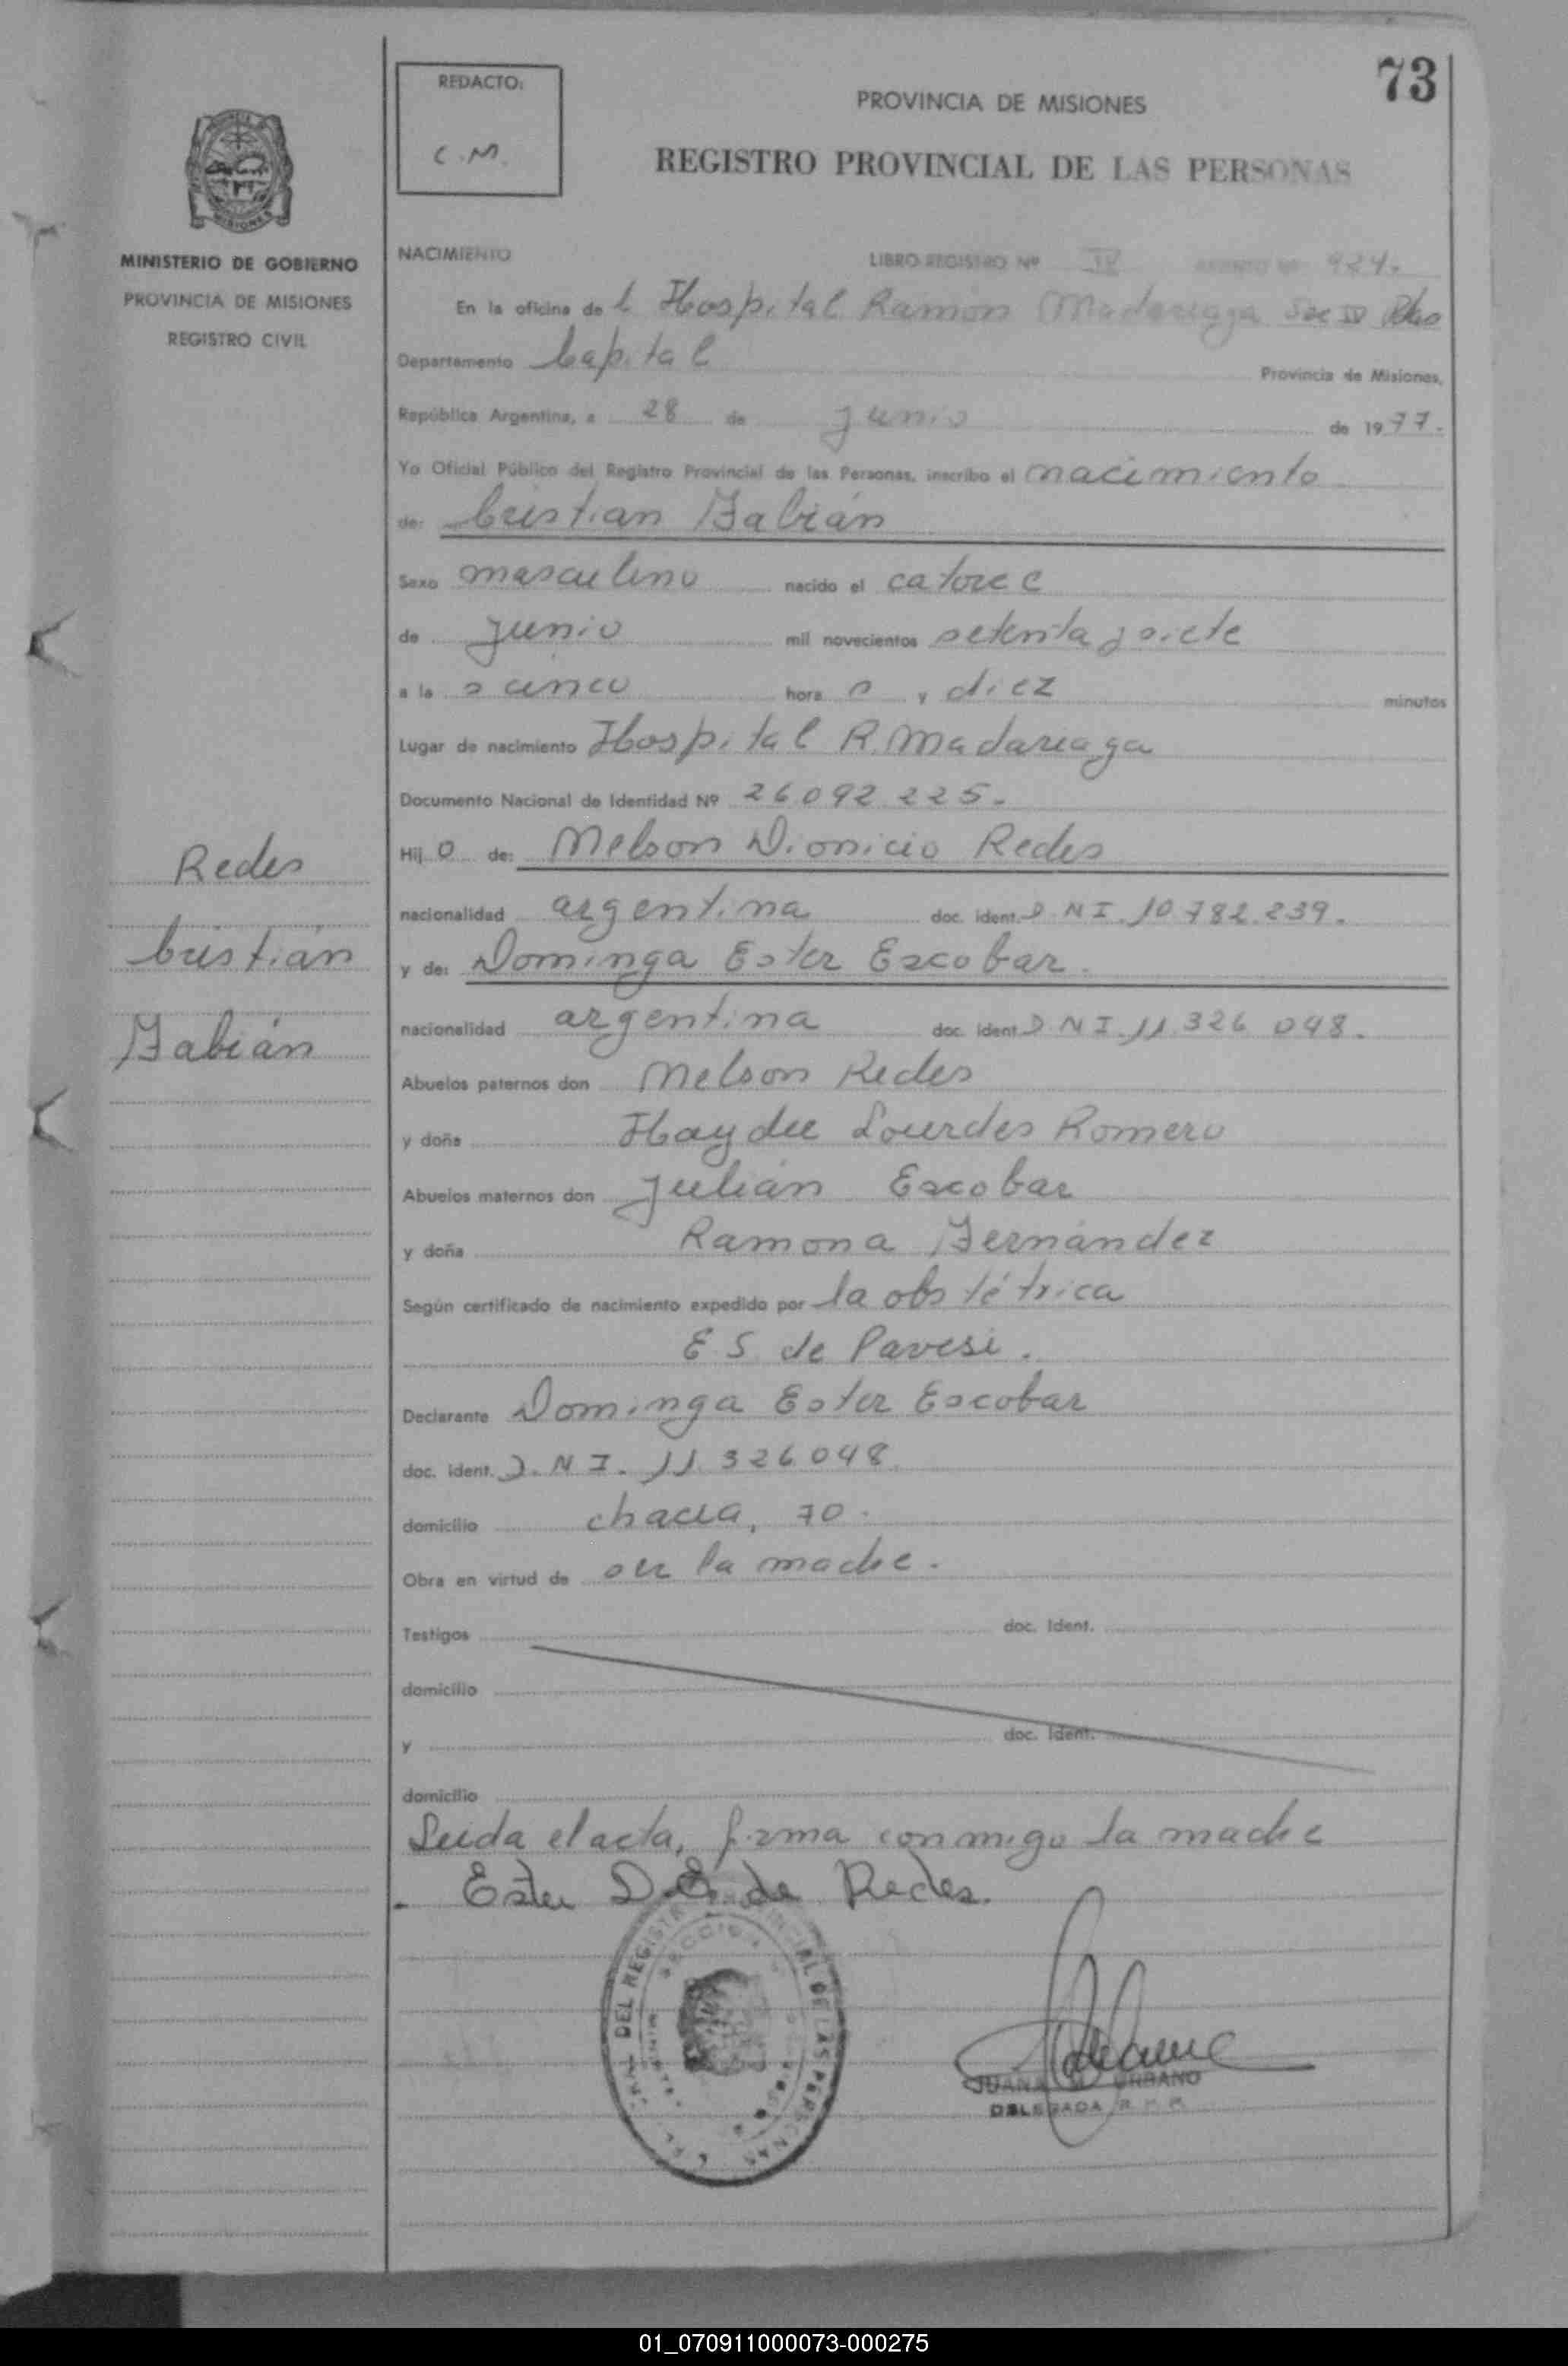 73
REDACTO:
C.M.
PROVINCIA DE MISIONES
REGISTRO PROVINCIAL DE LAS PERSONAS
MISIONES
MINISTERIO DE GOBIERNO
PROVINCIA DE MISIONES
REGISTRO CIVIL
NACIMIENTO LIBRO REGISTRO Nº IV 924.
En la oficina de l Hospital Ramón Madariaga Sec IV
Departamento Capital Provincia de Misiones,
República Argentina, a 28 de Junio de 1977.
Yo Oficial Público del Registro Provincial de las Personas, inscribo el nacimiento
de: Cristian Fabián
Sexo masculino nacido el catorce
de Junio mil novecientos setenta y siete
a la s cinco hora s y diez minutos
Lugar de nacimiento Hospital R. Madariaga
Documento Nacional de Identidad Nº 26.092.225.
Hij o de: Nelson Dionicio Redes
nacionalidad argentina doc. ident. D N I. 10.782.239.
y de: Dominga Ester Escobar.
nacionalidad argentina doc. ident. D.N I. 11.326.048.
Abuelos paternos don Nelson Redes
y doña Haydee Lourdes Romero
Abuelos maternos don Julián Escobar
y doña Ramona Fernández
Según certificado de nacimiento expedido por la obstétrica
E.S. de Pavesi.
Declarante Dominga Ester Escobar
doc. ident. D.N I. 11.326.048.
domicilio chacra, 70.
Obra en virtud de ser la madre.
Testigos doc. Ident.
domicilio
y doc. Ident.
domicilio
Leida el acta, firma conmigo la madre
Ester D.E. de Redes.
Redes
Cristián
Fabián
DEL REGISTRO PROVINCIAL DE LAS PERSONAS
JUANA URBANO
DELEGADA R. P. P.
01_070911000073-000275